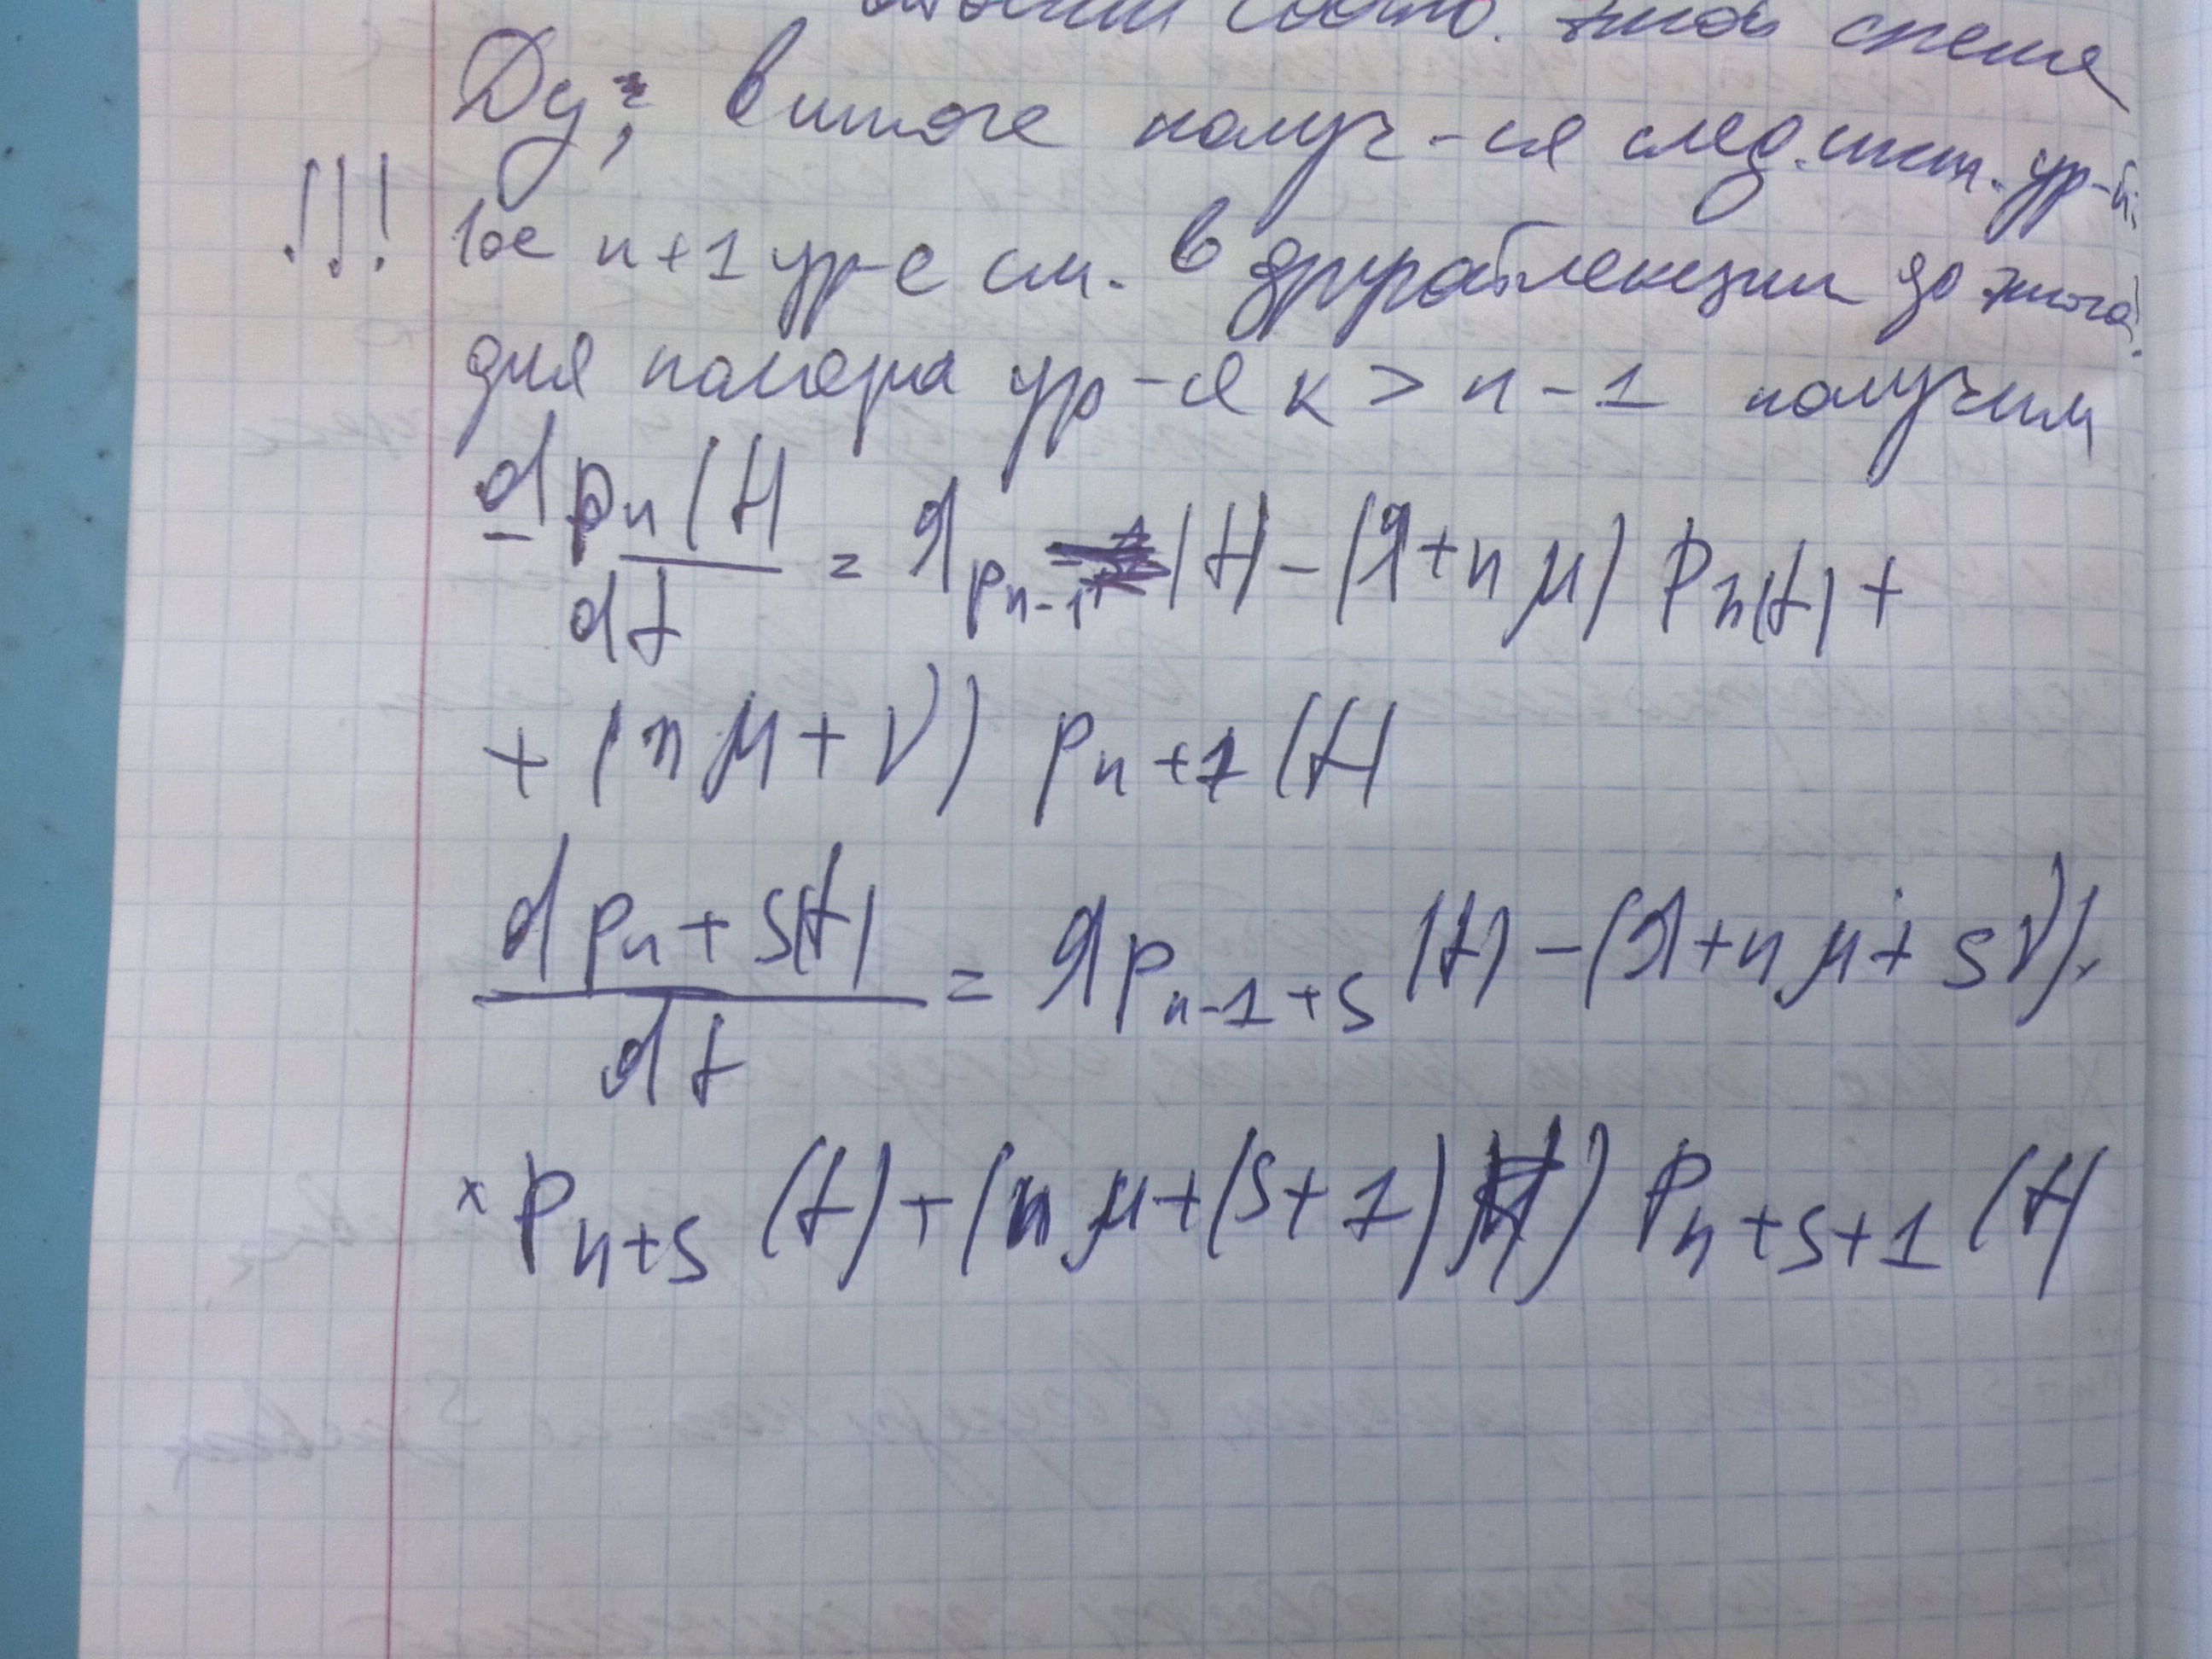 смене
Ду; в итоге получ-ся след. сист. ур-й:
!!! 1ое n+1 ур-е см. в др. лекции до этого.
для номера ур-я к > n-1 получим
dpₙ(t)/dt = λpₙ₋₁(t) - (λ+nμ) pₙ(t) +
+ (nμ + ν) pₙ₊₁(t)
dpₙ₊ₛ(t)/dt = λpₙ₋₁₊ₛ(t) - (λ+nμ+sν)×
× pₙ₊ₛ(t) + (nμ+(s+1)ν) pₙ₊ₛ₊₁(t)